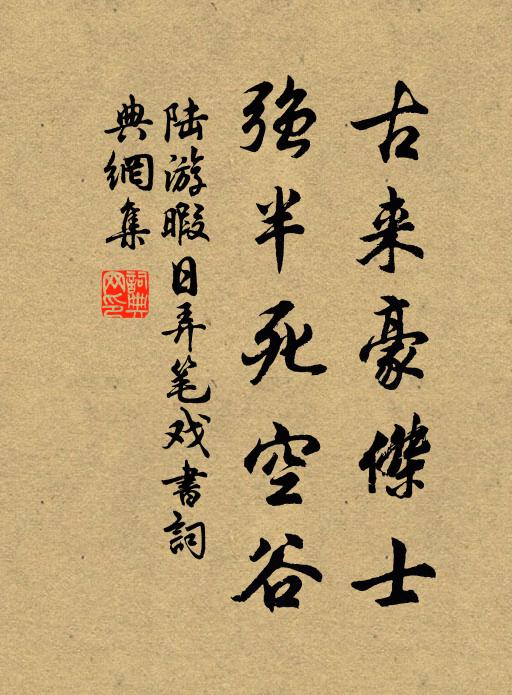 古来豪傑士
強半死空谷
陆游暇日弄笔戏書詞
典網集
詞典网印